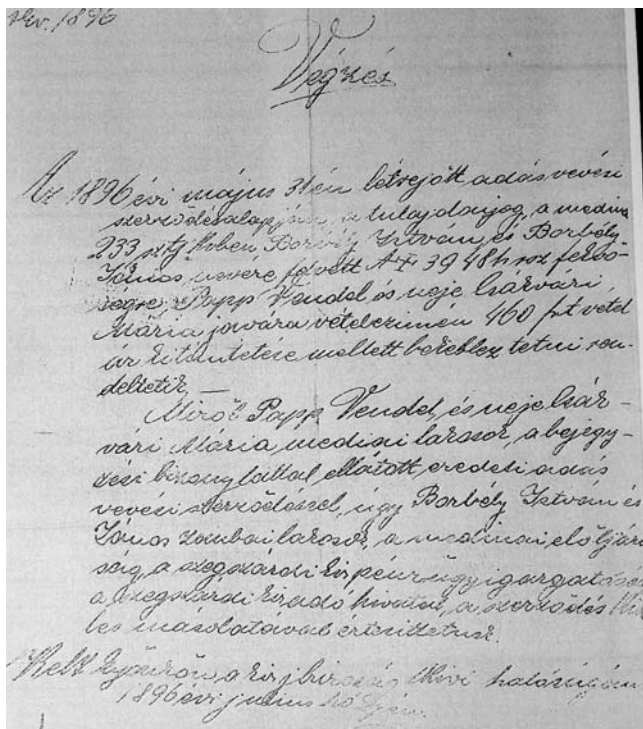 1896
Végzés
Az 1896 évi május 31én létrejött adás vevési
szerződés alapján, a tulajdonjog, a medina
233 sztjkvben Borbély István és Borbély
János nevére felvett A+ 3948 hrsz fekvő-
ségre Papp Vendel és neje Csárvári
Mária javára vétel czimén 460 frt vétel
ár kitüntetése mellett bekebleztetni ren-
deltetik. —
Miről Papp Vendel és neje Csár-
vári Mária medinai lakosok, a bejegy-
zési bizonylattal ellátott eredeti adás
vevési szerződéssel, úgy Borbély István és
János zombai lakosok, a medinai előljáró
ság, a szegszárdi kir pénzügyigazgatóság
a szegszárdi kir adó hivatal, a szerződés hite
les másolatával értesittetnek.
Kelt Gyönkön, a kir jbiróság tkkvi hatóságánál
1896 évi julius hó